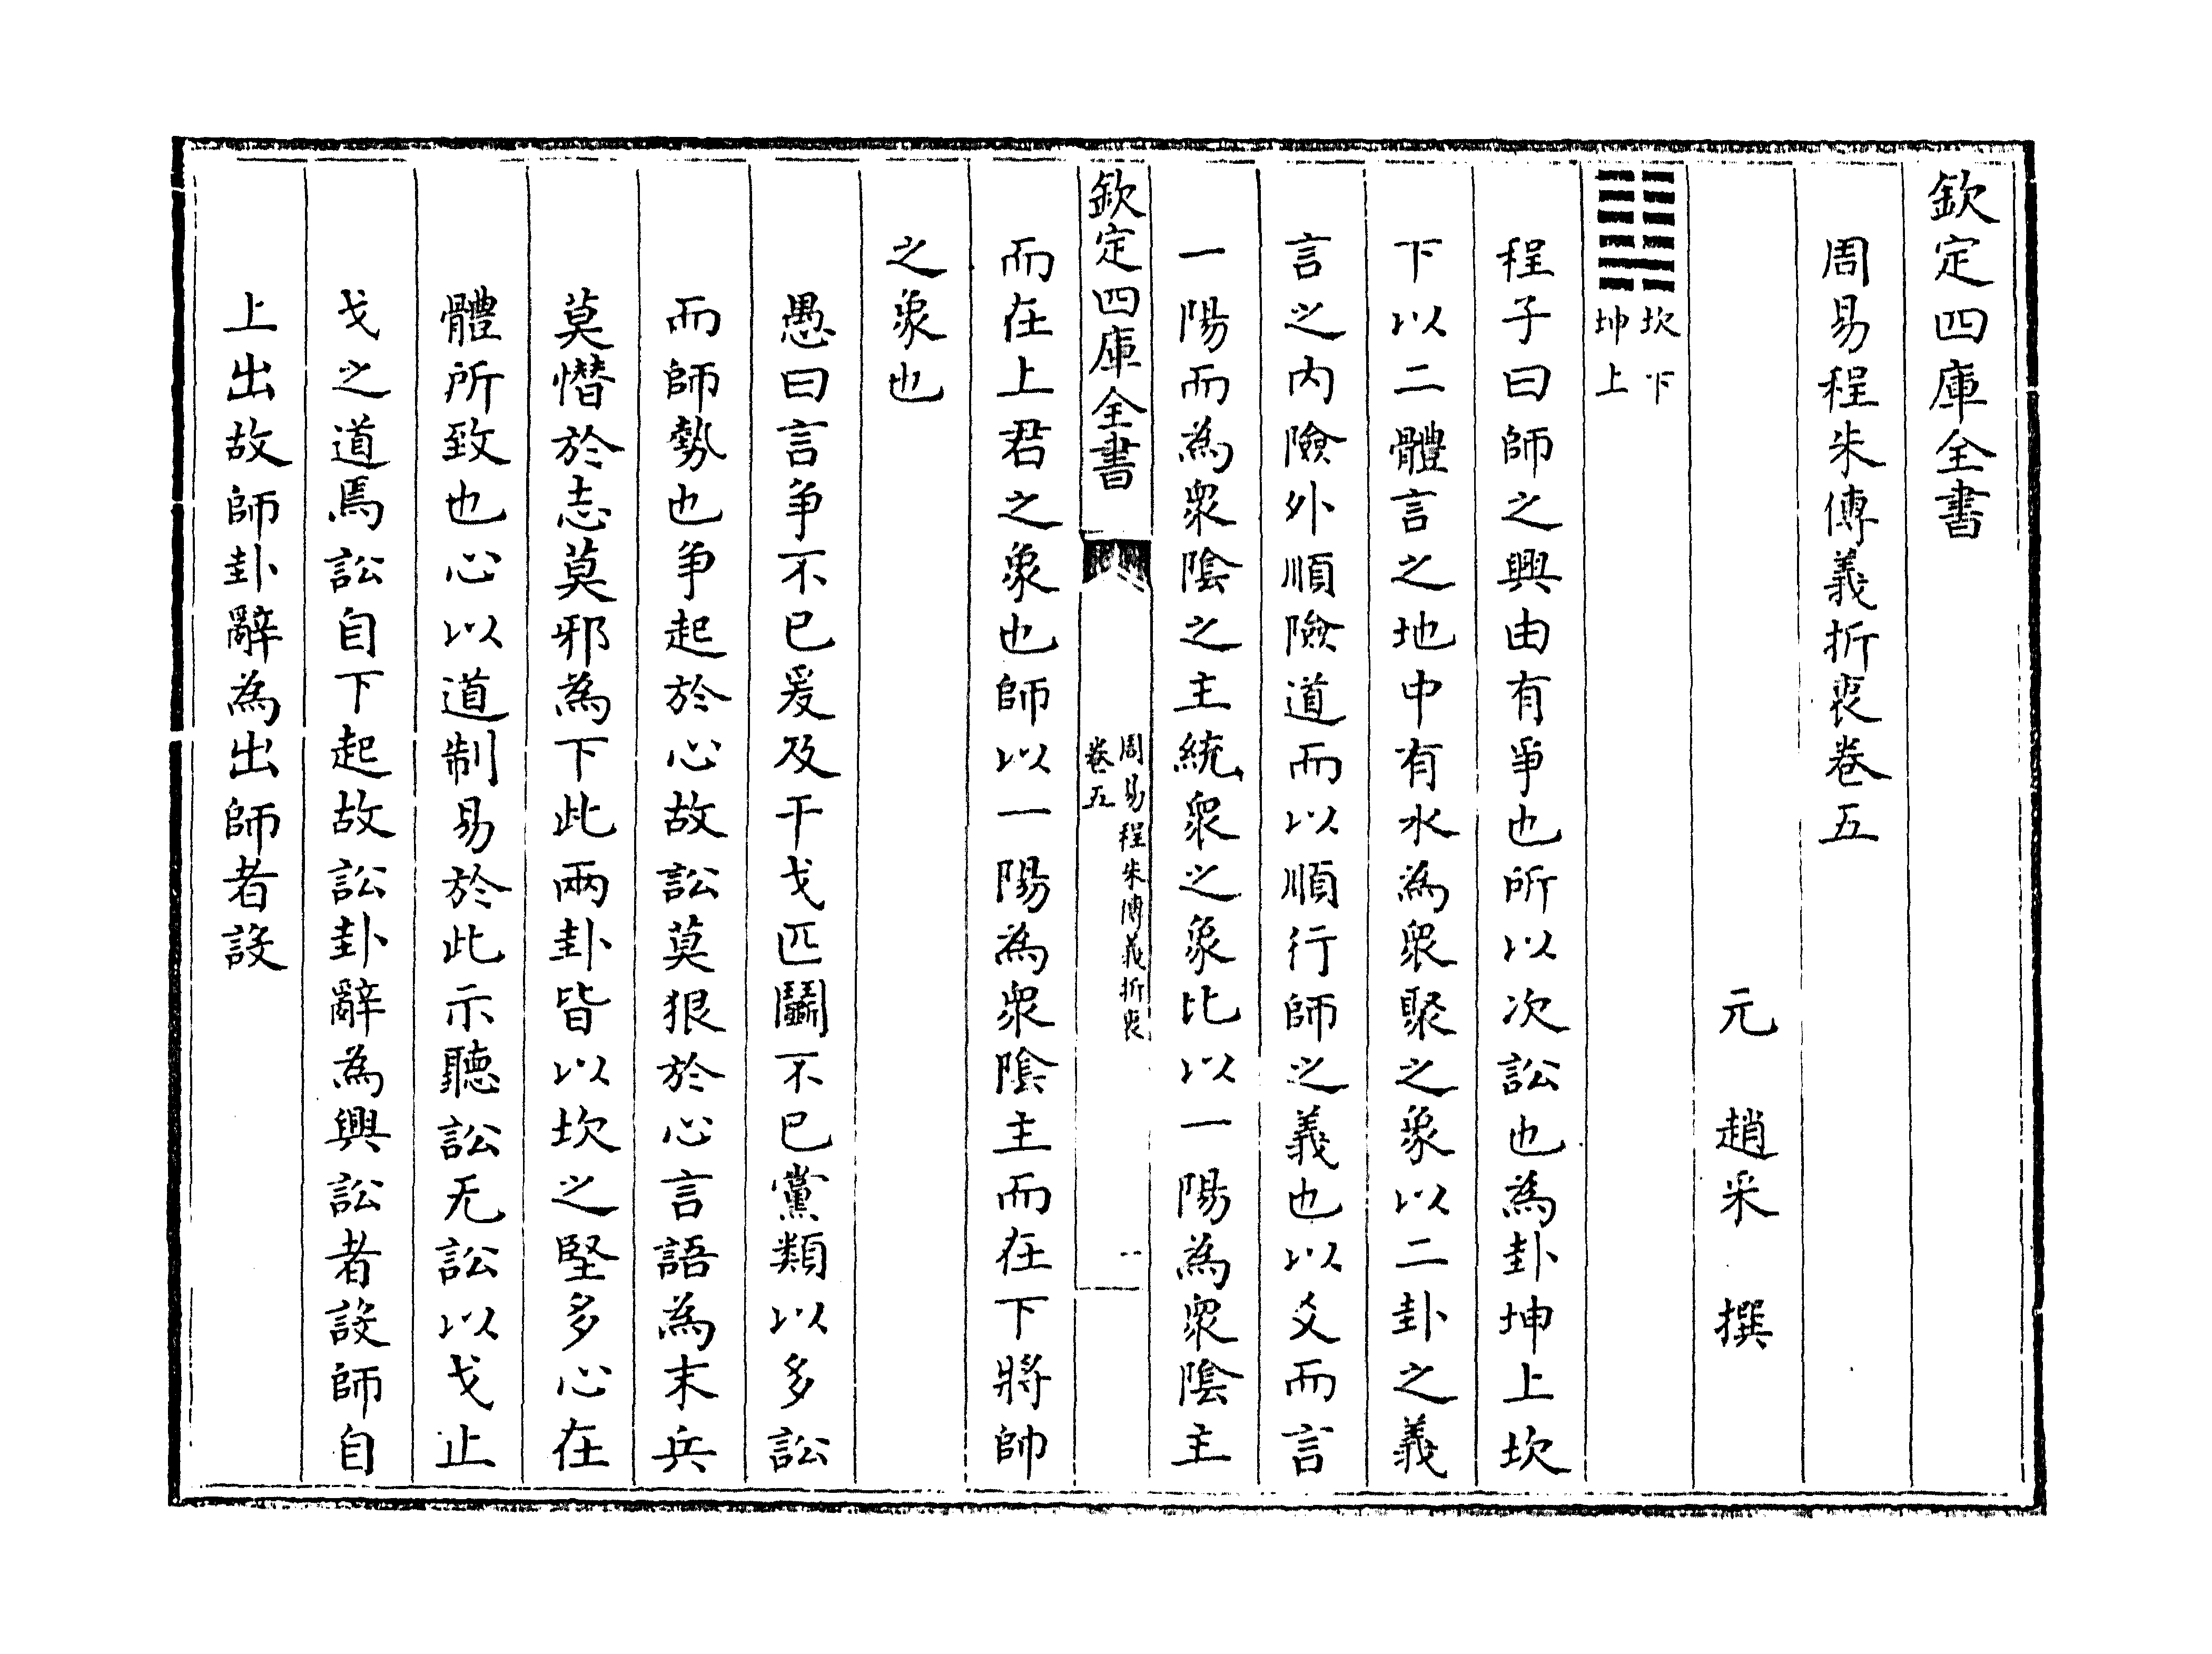 欽定四庫全書
周易程朱傳義折衷卷五
元 趙采 撰
䷆坎下坤上
程子曰師之興由有爭也所以次訟也為卦坤上坎
下以二體言之地中有水為衆聚之象以二卦之義
言之内險外順險道而以順行師之義也以爻而言
一陽而為衆陰之主統衆之象比以一陽為衆陰主
欽定四庫全書
周易程朱傳義折衷
卷五
一
而在上君之象也師以一陽為衆陰主而在下將帥
之象也
愚曰言争不已爰及干戈匹鬭不已黨類以多訟
而師勢也争起於心故訟莫狠於心言語為末兵
莫憯於志莫邪為下此兩卦皆以坎之堅多心在
體所致也心以道制易於此示聽訟无訟以戈止
戈之道焉訟自下起故訟卦辭為興訟者設師自
上出故師卦辭為出師者設